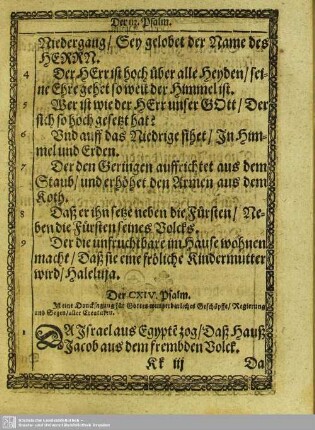 Der 113. Psalm.
Niedergang/ Sey gelobet der Name des
HERRN.
4 Der HErr ist hoch über alle Heyden/ sei-
ne Ehre gehet so weit der Himmel ist.
5 Wer ist wie der HErr unser GOtt/ Der
sich so hoch gesetzt hat?
6 Vnd auff das Niedrige sihet/ In Him-
mel und Erden.
7 Der den Geringen auffrichtet aus dem
Staub/ und erhöhet den Armen aus dem
Koth.
8 Daß er ihn setze neben die Fürsten/ Ne-
ben die Fürsten seines Volcks.
9 Der die unfruchtbare im Hause wohnen
macht/ Daß sie eine fröliche Kindermutter
wird/ Haleluja.
Der CXIV. Psalm.
Ist eine Dancksagung für Gottes wunderbarliches Geschöpffe/ Regierung
und Segen/ aller Creaturen.
1 DA Israel aus Egyptē zog/ Daß Hauß
Jacob aus dem frembden Volck.
Kk iij Da